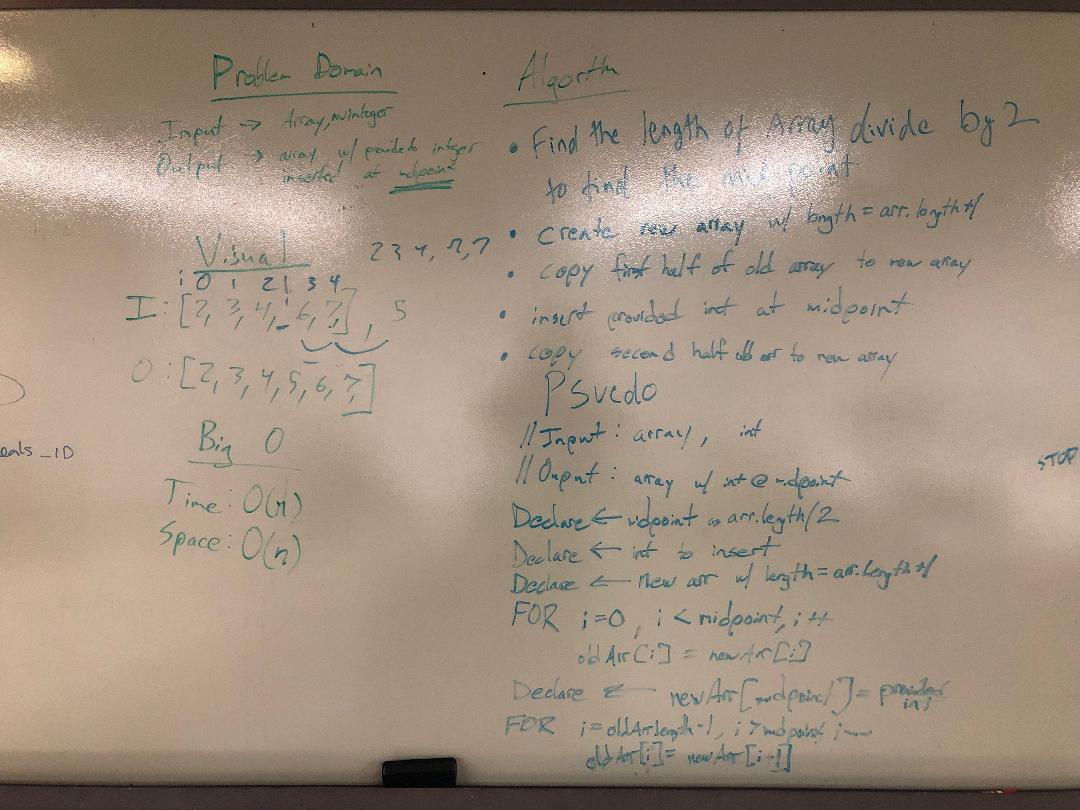 Problem Domain
Input → Array, integer
Output → array w/ integer
inserted at midpoint
Visual
2 3 4, 7, 7
i 0 1 2 3 4
I: [2, 3, 4, 6, 7], 5
O: [2, 3, 4, 5, 6, 7]
Big O
Time: O(n)
Space: O(n)
eals_ID
Algorthm
• Find the length of Array divide by 2
to find the mid point
• create new array w/ length = arr.length+1
• copy first half of old array to new array
• insert provided int at midpoint
• copy second half old arr to new array
Psuedo
// Input: array, int
// Ouput: array w/ int @ midpoint
Declare ← midpoint as arr.length/2
Declare ← int to insert
Declare ← new arr w/ length = arr.length+1
FOR i=0, i < midpoint, i++
oldArr[i] = newArr[i]
Declare ← newArr[midpoint] = provided
int
FOR i=oldArrlength-1, i > midpoint, i--
oldArr[i] = newArr[i+1]
STOP